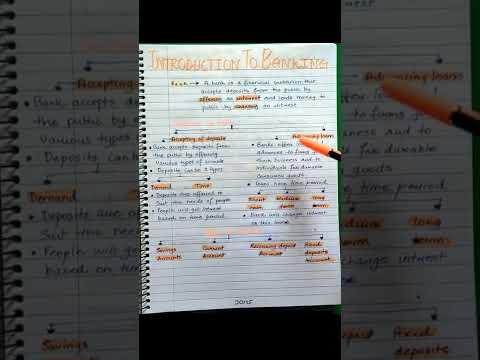 INTRODUCTION TO BANKING
Bank → A bank is a financial institution that
accepts deposits from the public by
offering an interest and lends money to
public by charging an interest
Accepting of deposits
• Bank accepts deposits from
the public by offering
various types of
• Deposits can 2 types
Demand Time
• Deposits are offered to
Suit the needs of people
• People will get interest
based on time period
Advancing loans
• Banks offers
advances to firms
their business and to
individuals for durable
consumer goods
• loans have time period
Short term
Medium term
Long term
• Bank will charges interest
to this loans
Savings Accounts
Current Account
Recurring deposit Account
Fixed deposits
Accepting of deposits
Bank accepts
the public by
Various types
Deposits can
Demand
• Deposits are
Suit the n
• People will
based on time
Savings
Accounts
Advancing loans
business and to
for durable
goods
time period
Long
term
charges interest
Fixed
deposits